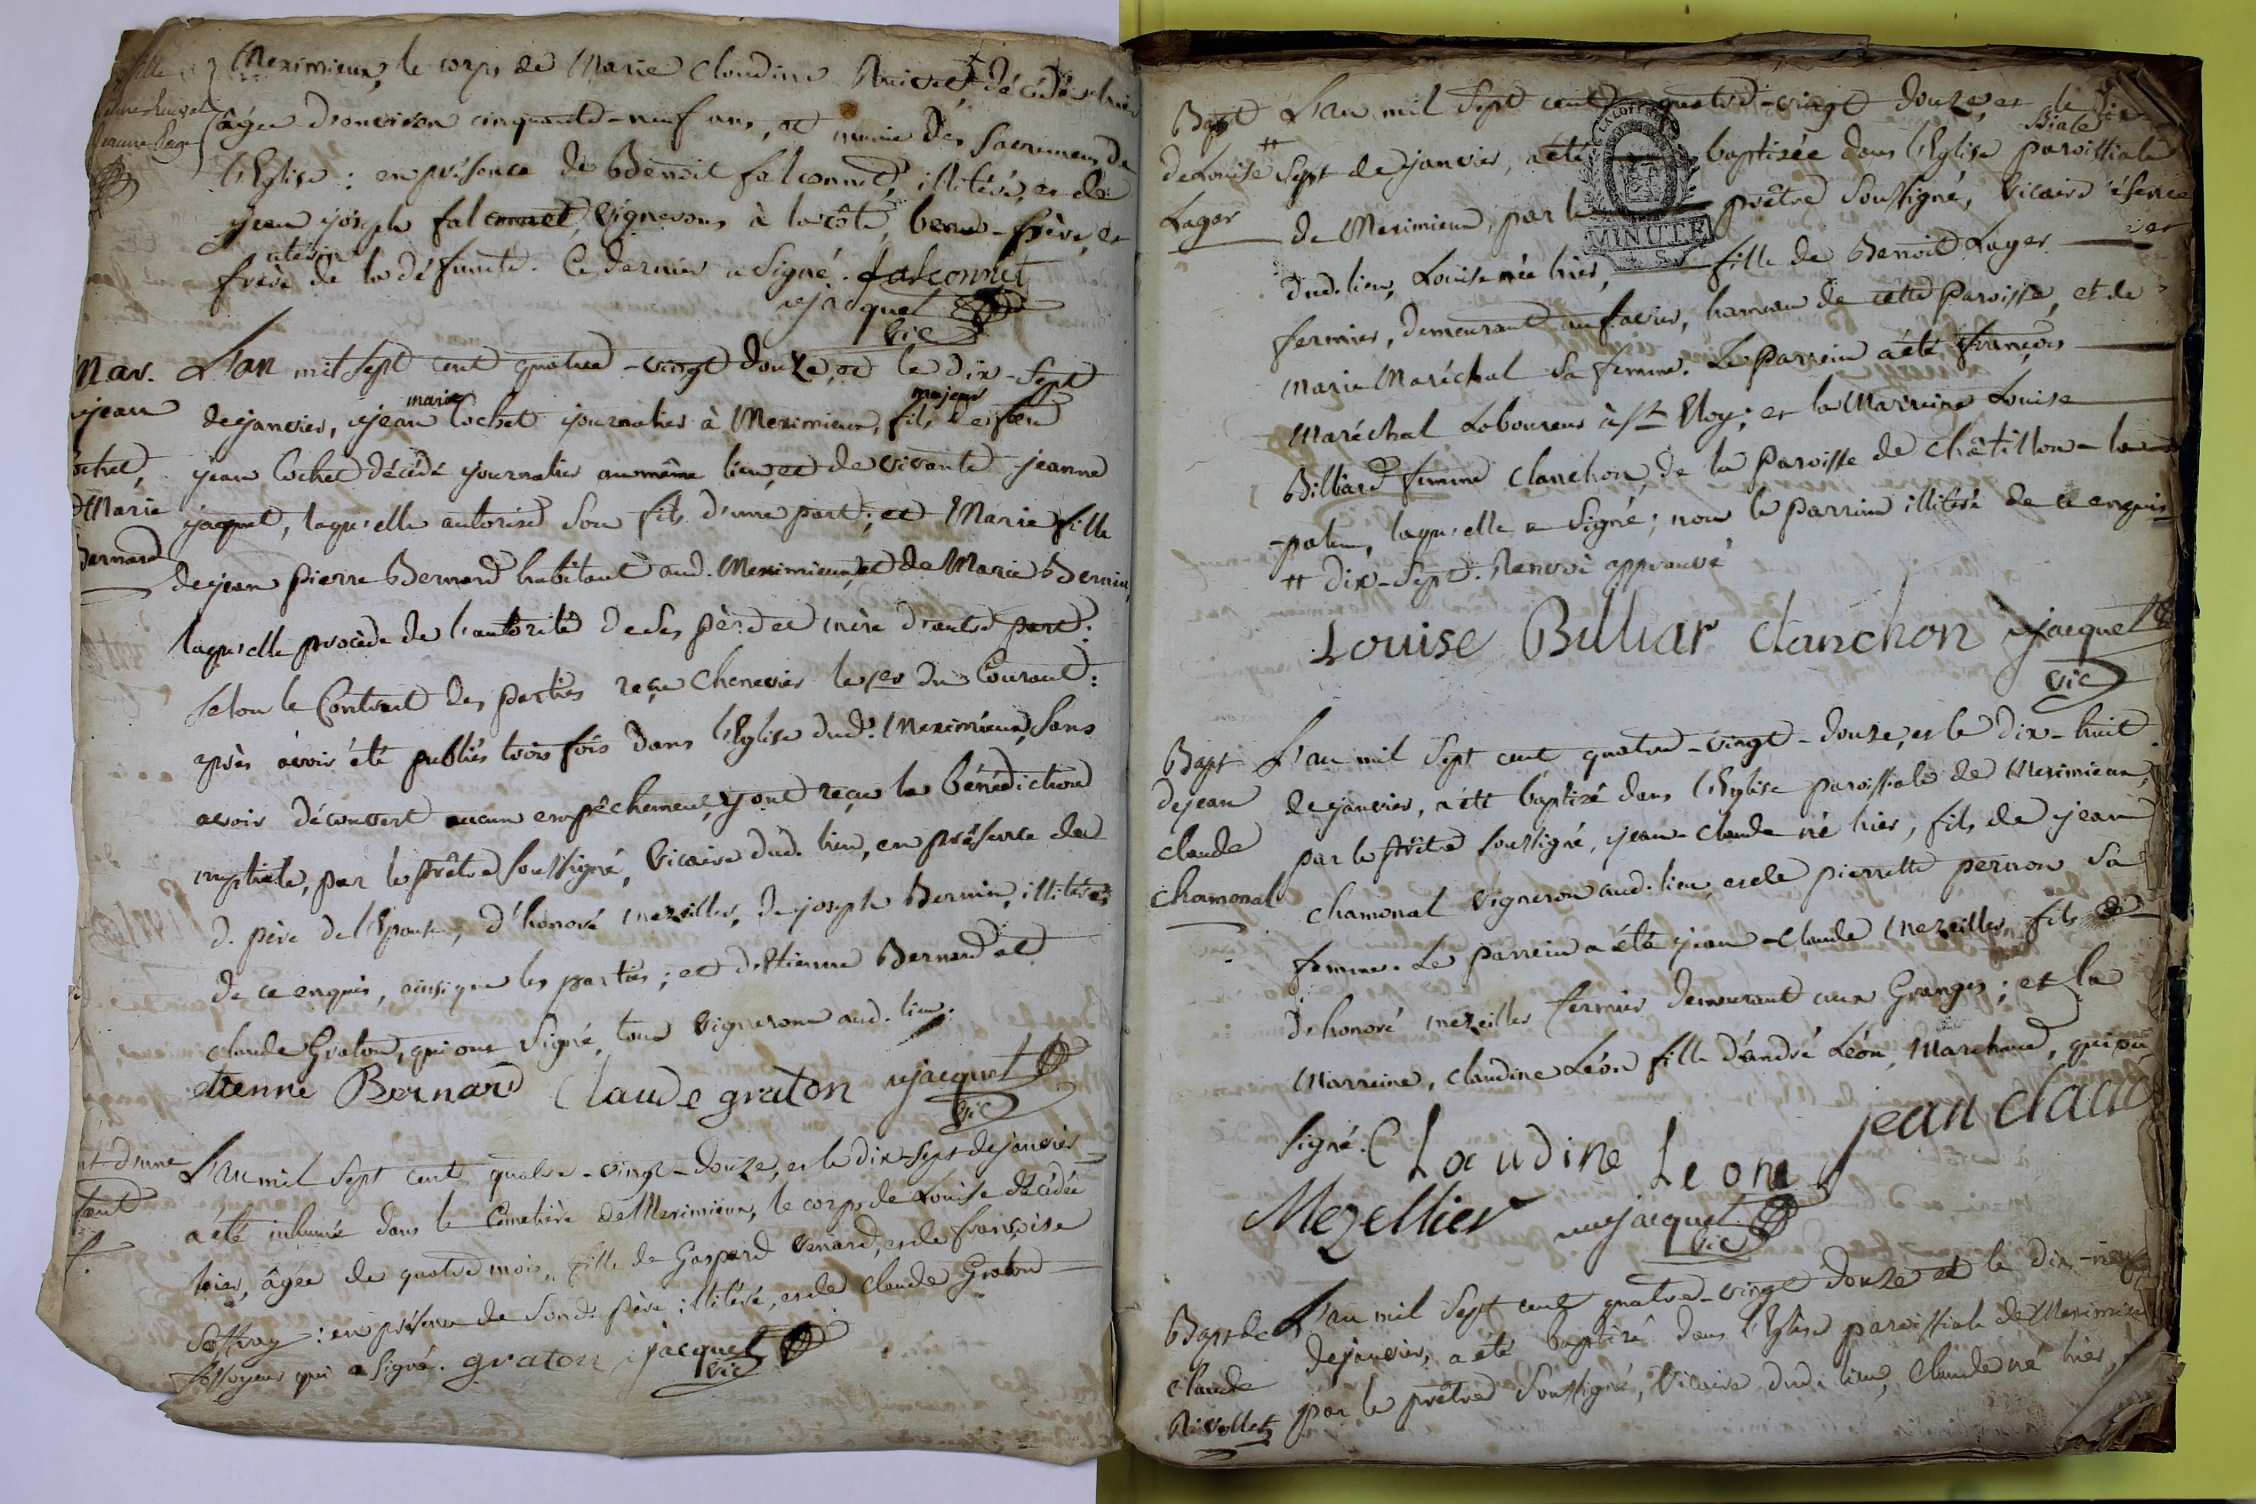 Meximieux, le corps de Marie Claudine décédée hier
âgée d'environ cinquante-neuf ans, et munie des Sacremens de
l'Eglise : en présence de Benoit falconnet, illitéré, et de
jean joseph falconnet, vignerons à la côte, beau-frère, et
utérin
frère de la défuncte. Ce dernier a signé. falconnet
jacquet
vic
Mar. L'an mil sept cent quatre-vingt douze, et le dix-sept
marie majeur
jean de janvier, jean Cochet journalier à Meximieux, fils de feu
jean Cochet décédé journalier au même lieu, et de vivante jeanne
Marie jaquet, laquelle autorise son fils d'une part ; et Marie fille
Bernard de jean pierre Bernard habitant aud. Meximieux, et de Marie Bernin,
laquelle procède de l'autorité de ses père et mère d'autre part :
selon le Contract des parties reçu Chenevier le 1er du Courant :
après avoir été publiés trois fois dans l'Eglise dud. Meximieux, sans
avoir découvert aucun empêchement, y ont reçu la bénédiction
nuptiale, par le prêtre soussigné, vicaire dud. lieu, en présence de
d. père de l'Epouse, d'honoré mezeillier, de joseph Bernin, illitérés
de ce enquis, ainsi que les parties ; et d'étienne Bernard et
claude Graton, qui ont signé, tous vignerons aud. lieu.
etienne Bernard Claude graton jacquet
vic
L'an mil sept cent quatre-vingt-douze, et le dix-sept de janvier
a été inhumé dans le Cimetière de Meximieux, le corps de Louise décédée
hier, âgée de quatre mois, fille de Gaspard venard, et de françoise
Soffray : en présence de son d. père illitéré, et de claude Graton
fossoyeur qui a signé. graton jacquet
vic
Bapt L'an mil sept cent quatre-vingt douze, et le dix
de Louise # sept de janvier, a été baptisée dans l'Eglise paroissiale
Lager de Meximieux, par le prêtre soussigné, vicaire
MINUTE
dud. lieu, Louise née hier, fille de Benoit Lager
fermier, demeurant au favier, hameau de cette paroisse, et de
Marie Maréchal sa femme. Le parrein a été françois
Maréchal Laboureur à St Eloy ; et la Marreine Louise
Billiard femme Clanchon, de la paroisse de châtillon-la
-palu, laquelle a signé ; non le parrein illitéré de ce enquis
# dix-sept. Renvoi approuvé
Louise Billiar Clanchon jacquet
vic
Bapt L'an mil sept cent quatre-vingt-douze, et le dix-huit
de jean de janvier, a été baptisé dans l'Eglise paroissiale de Meximieux,
claude par le prêtre soussigné, jean-claude né hier, fils de jean
Chamonal chamonal vigneron aud. lieu, et de pierrette pernon sa
femme. Le parrein a été jean-claude mezeillier fils
d'honoré mezeillier fermier demeurant aux Granges ; et la
Marreine, claudine Léon fille d'andré Léon, Marchand, qui ont
signé. Claudine Leone jean claude
Mezellier jacquet
vic
Bapt de L'an mil sept cent quatre-vingt douze et le dix-neuf
claude de janvier, a été baptisé dans l'Eglise paroissiale de Meximieux
Rivollet par le prêtre soussigné, vicaire dud. lieu, Claude né hier,